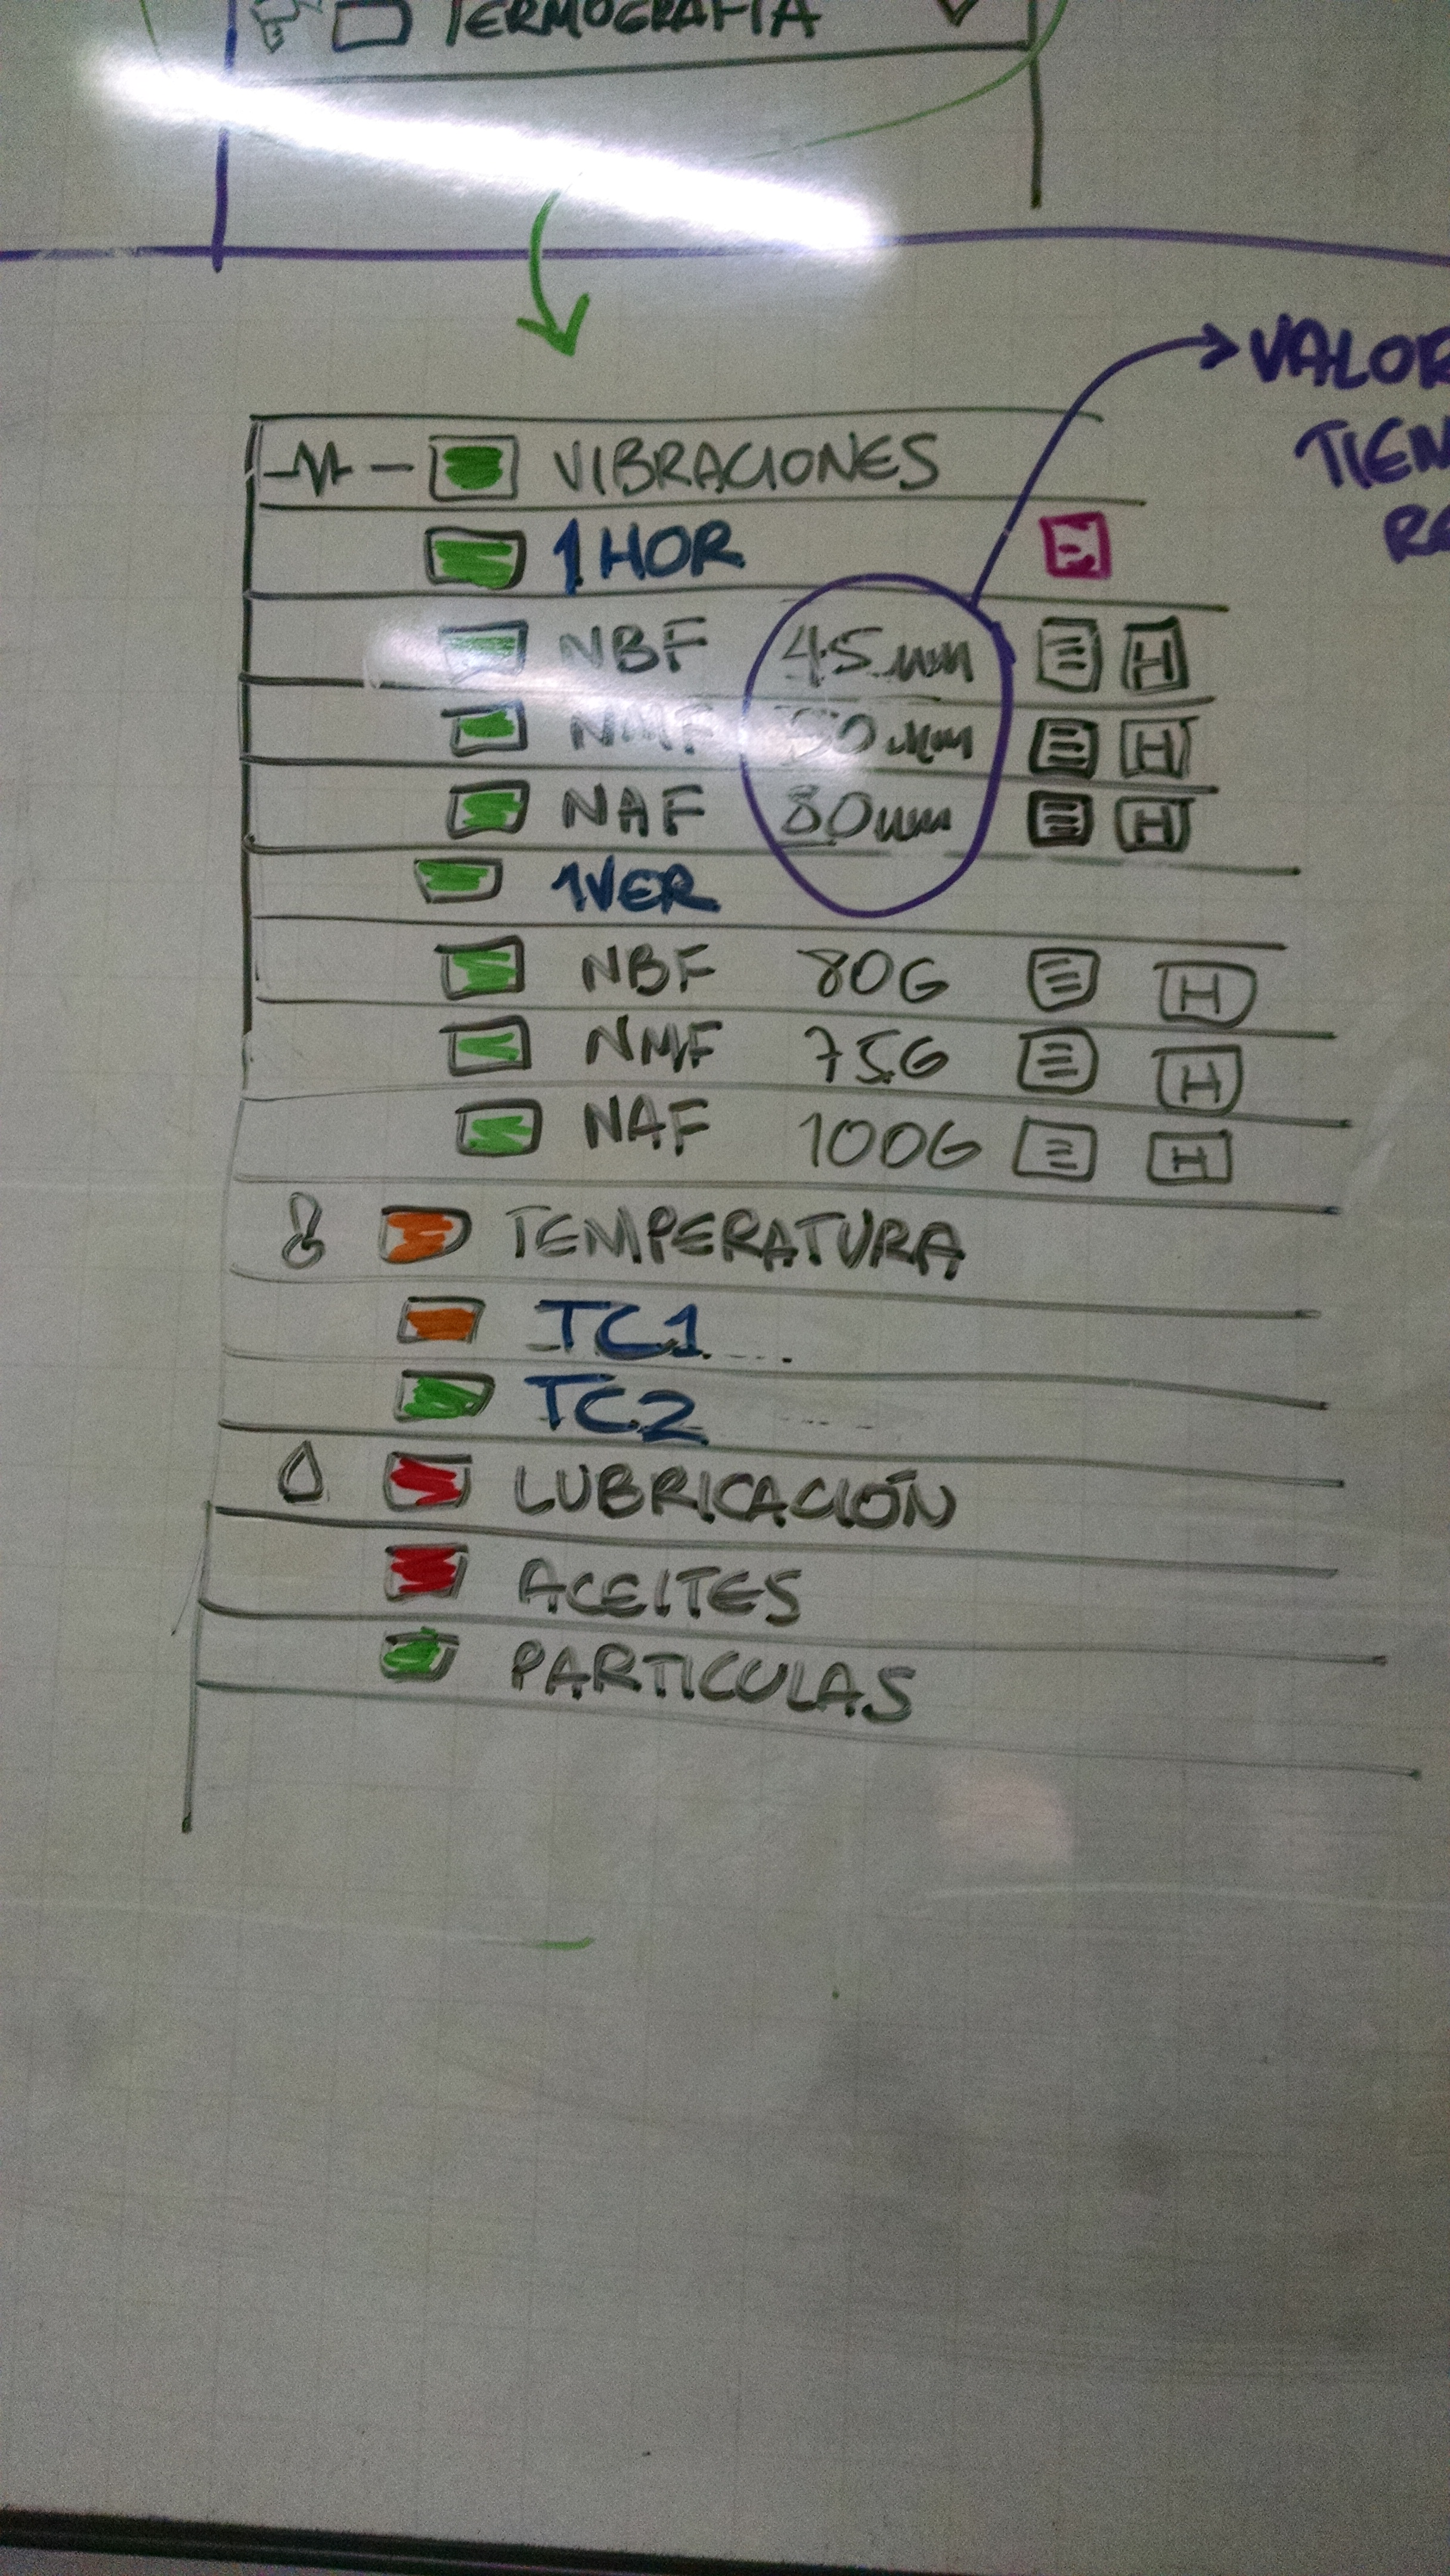 TERMOGRAFIA
VALOR
TIEM
RE
VIBRACIONES
1 HOR
NBF 45 mm H
NMF 50 mm H
NAF 80 mm H
1 VER
NBF 80G H
NMF 75G H
NAF 100G H
TEMPERATURA
TC1
TC2
LUBRICACIÓN
ACEITES
PARTICULAS